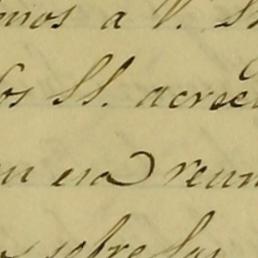 mos a V. S
los SS. acree
en esa reun
sobre las